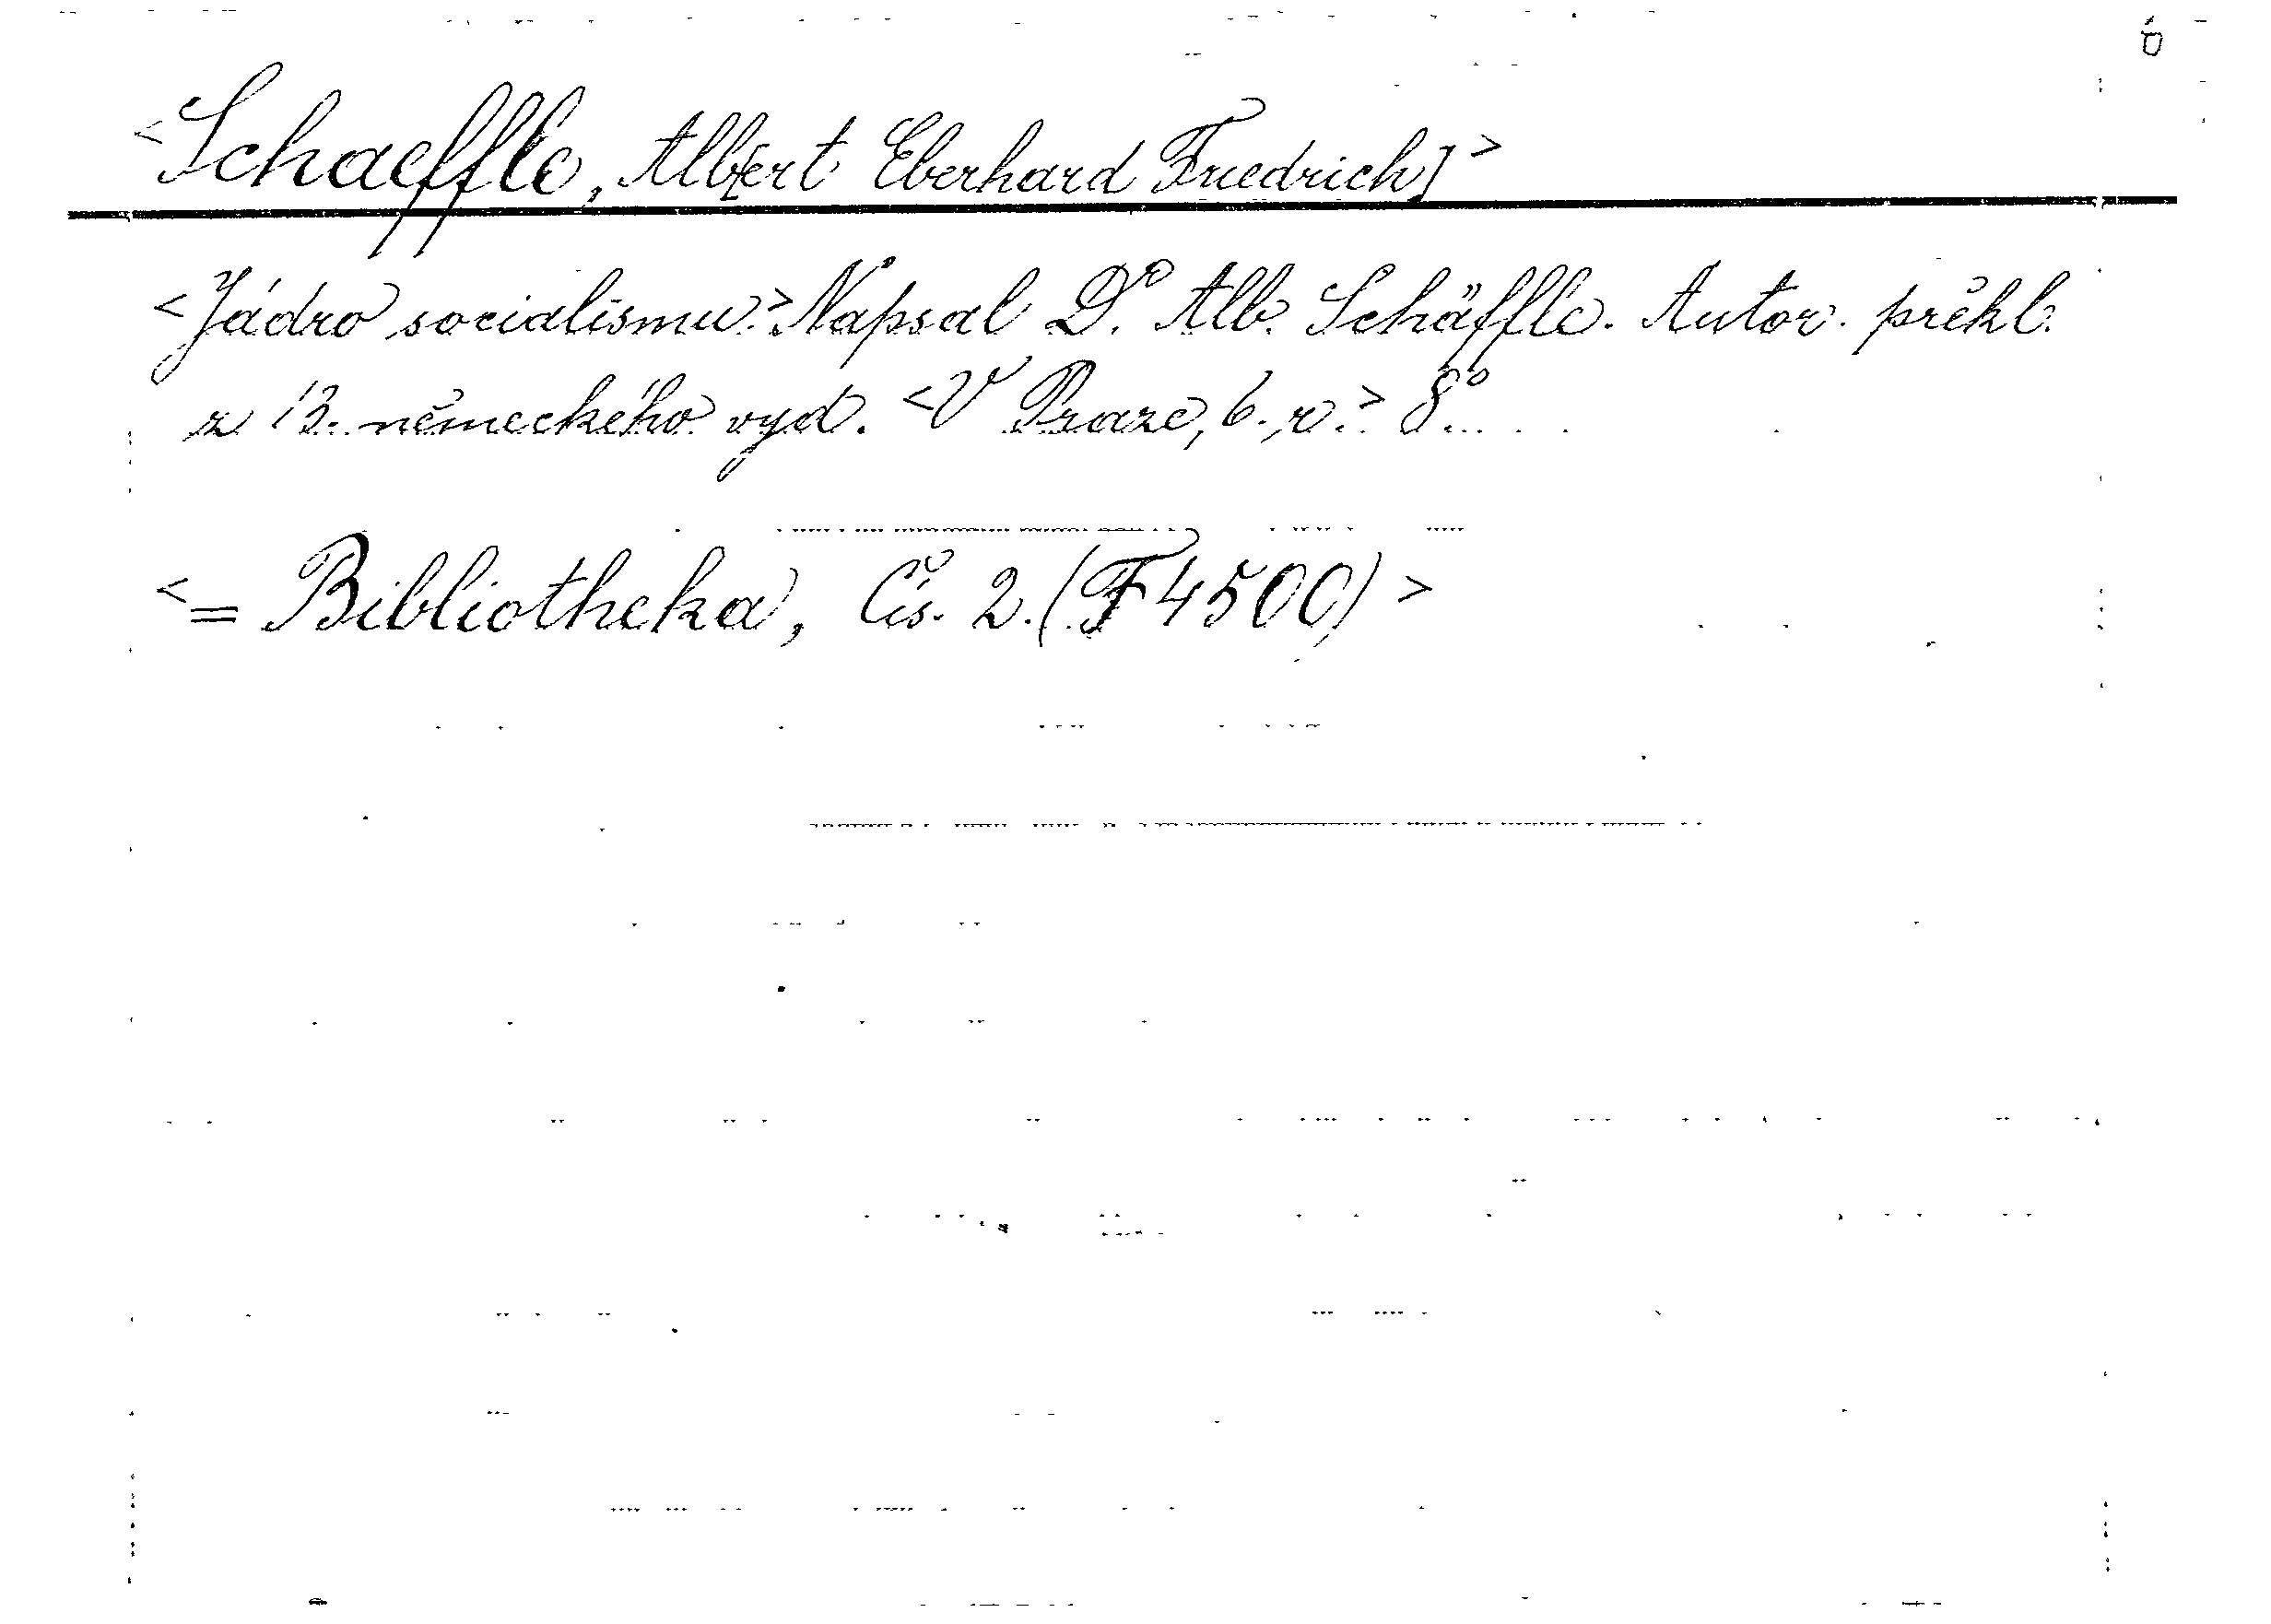 <Schaeffle, Alb[ert Eberhard Friedrich]>
<Jádro socialismu.> Napsal Dr. Alb. Schäffle. Autor. překl.
z 13. německého vyd. <V Praze, b. r.> 8°.
<= Bibliotheka, Čís. 2. (F 4500)>